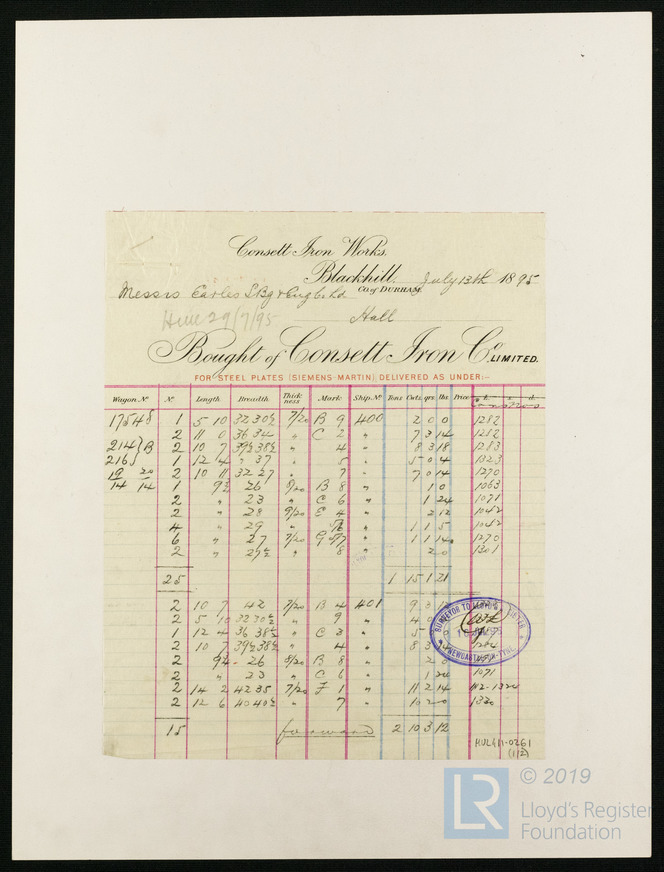 Consett Iron Works.
Blackhill. July 13th 1895
Co. of DURHAM
Messrs Earles S.Bg & Engg Co Ld
Hull
29/7/95
Bought of Consett Iron Co. LIMITED.
FOR STEEL PLATES (SIEMENS-MARTIN) DELIVERED AS UNDER:-
Wagon No. No. Length Breadth Thickness Mark Ship No. Tons Cwts. qrs. lbs Price
17548 1 5 10 32 30½ 7/20 B 9 400 2 0 0 1282
2 11 0 36 34 " C 2 " 7 3 14 1282
214 } B 2 10 7 39½ 38½ " 4 " 8 3 18 1283
216 1 12 4 " 37 " 5 " 5 0 4 1323
19 20 2 10 11 32 27 " 7 " 7 0 14 1270
14 14 1 9½ 26 8/20 B 8 " 1 0 1063
2 " 23 " C 6 " 1 24 1071
2 " 28 9/20 E 4 " 2 12 1042
4 " 29 " " 1 1 5 1042
6 " 27 7/20 G " 1 1 14 1270
2 " 29½ " 8 " 2 0 1301
25 1 15 1 21
2 10 7 42 7/20 B 4 401 9 3
2 5 10 32 30½ " 9 " 4 0
1 12 4 36 38½ " C 3 " 5 0
2 10 7 39½ 38½ " 4 " 8 3
2 9½ 26 8/20 B 8 " 2 0
2 " 23 " C 6 " 1 24 1071
2 14 2 42 35 7/20 F 1 " 11 2 14 1324
2 12 6 40 40½ " 7 " 10 2 0 1330
15 forward 2 10 3 12
SURVEYOR TO LLOYD'S
NEWCASTLE-ON-TYNE
HUL411-0261
(1/2)
LR © 2019
Lloyd's Register
Foundation